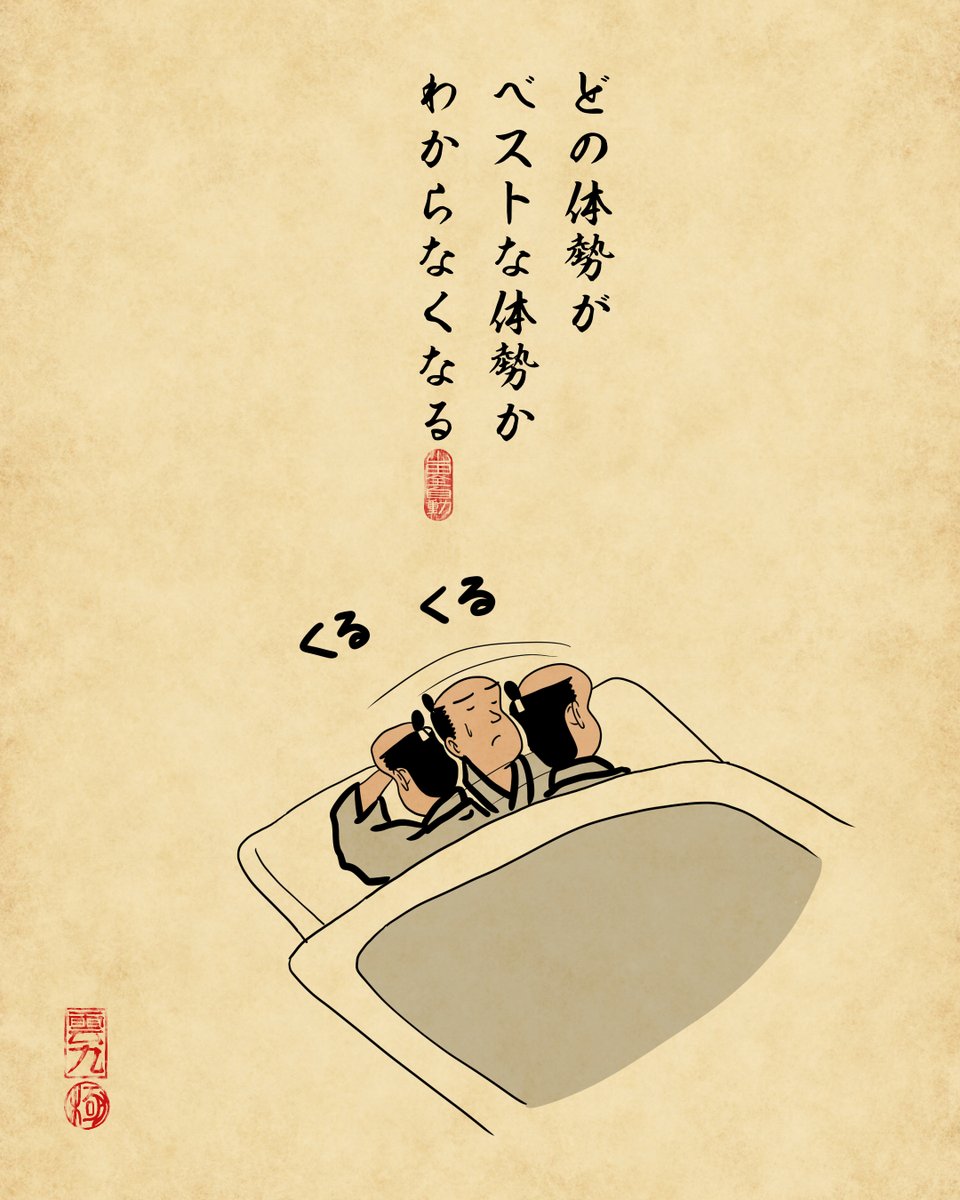 どの体勢が
ベストな体勢か
わからなくなる
くる くる
雲九
極